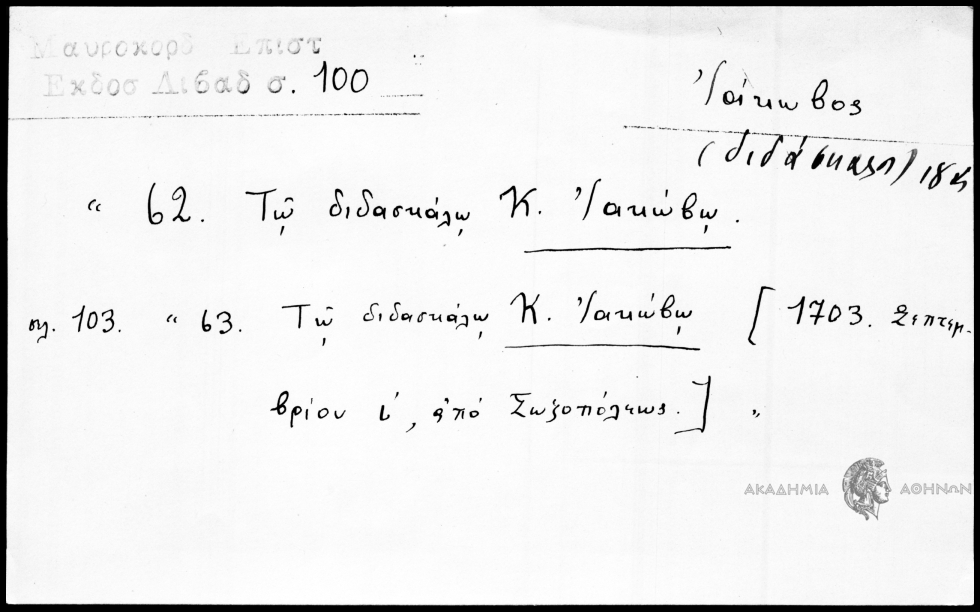 Μαυροκορδ Επιστ
Εκδοσ Λιβαδ σ. 100
Ἰάκωβος
(διδάσκαλος) 18
" 62. Τῷ διδασκάλῳ Κ. Ἰακώβῳ.
σελ. 103. " 63. Τῷ διδασκάλῳ Κ. Ἰακώβῳ [1703. Σεπτεμ-
βρίου ι΄, ἀπό Σωζοπόλεως.] "
ΑΚΑΔΗΜΙΑ ΑΘΗΝΩΝ